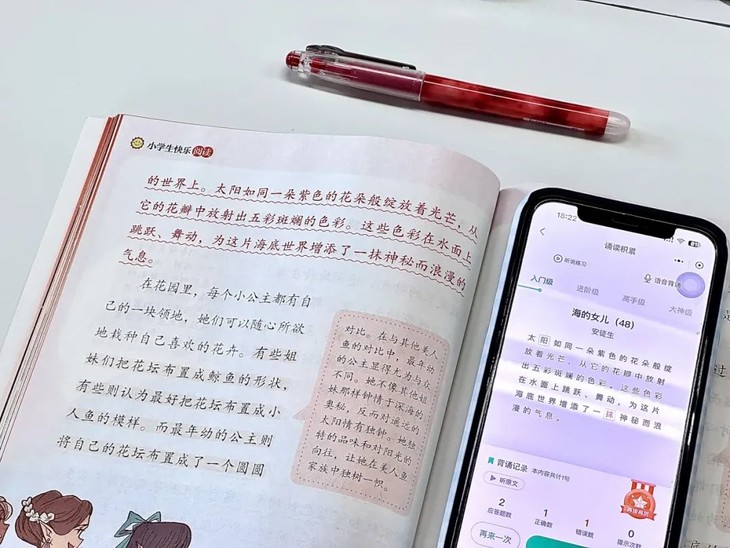 小学生快乐阅读
的世界上。太阳如同一朵紫色的花朵般绽放着光芒，从
它的花瓣中放射出五彩斑斓的色彩。这些色彩在水面上
跳跃、舞动，为这片海底世界增添了一抹神秘而浪漫的
气息。
在花园里，每个小公主都有自
己的一块领地，她们可以随心所欲
地栽种自己喜欢的花卉。有些姐
妹们把花坛布置成鲸鱼的形状，
有些则认为最好把花坛布置成小
人鱼的模样。而最年幼的公主则
将自己的花坛布置成了一个圆圆
对比。在与其他美人
鱼的对比中，最年幼
的公主显得尤为与众
不同。她不像其他姐
妹那样钟情于深海的
奥秘，反而对遥远的
太阳情有独钟。她独
特的品味和对阳光的
向往，让她在美人鱼
家族中独树一帜。
18:22
诵读积累
听词练习
语音背诵
入门级
进阶级
高手级
大神级
海的女儿（48）
安徒生
太阳如同一朵紫色的花朵般绽
放着光芒，从它的花瓣中放射
出五彩斑斓的色彩。这些色彩
在水面上跳跃、舞动，为这片
海底世界增添了一抹神秘而浪
漫的气息。
背诵记录 本内容共计1句
听原文
2
应答题数
1
正确数
1
错误数
0
提示次数
再来一次